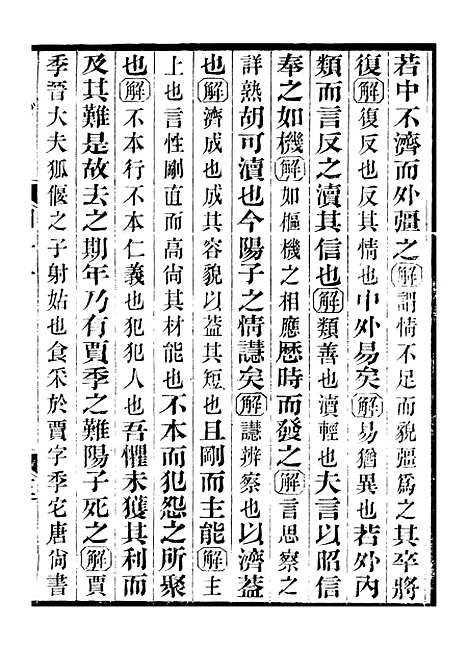 若中不濟而外彊之解謂情不足而貌彊爲之其卒將
復解復反也反其情也中外易矣解易猶異也若外內
類而言反之瀆其信也解類善也瀆輕也夫言以昭信
奉之如機解如樞機之相應歷時而發之解言思察之
詳熟胡可瀆也今陽子之情譿矣解譿辨察也以濟葢
也解濟成也成其容貌以葢其短也且剛而主能解主
上也言性剛直而高尙其材能也不本而犯怨之所聚
也解不本行不本仁義也犯犯人也吾懼未獲其利而
及其難是故去之期年乃有賈季之難陽子死之解賈
季晉大夫狐偃之子射姑也食采於賈字季宅唐尙書